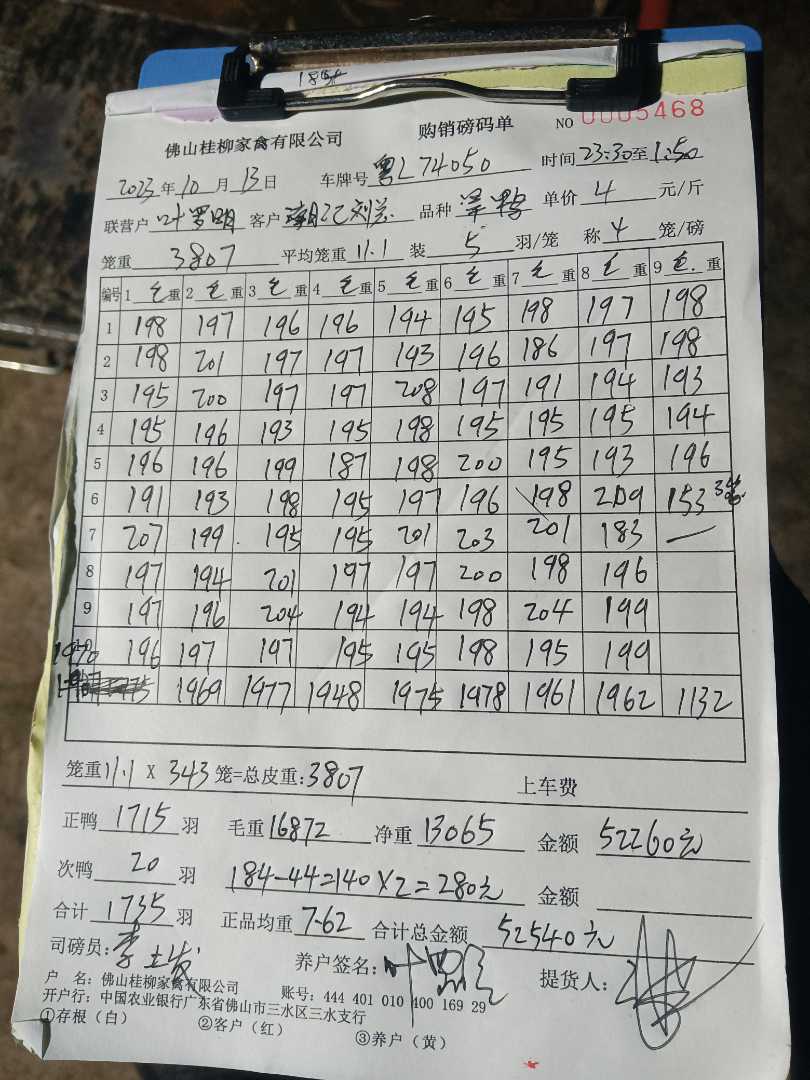 184
佛山桂柳家禽有限公司 购销磅码单 NO 0005468
2023年10月13日 车牌号 粤L74050 时间23:30至1:50
联营户 叶罗明 客户 品种 单价 4 元/斤
笼重 3807 平均笼重 11.1 装 5 羽/笼 称 4 笼/磅
编号 1 毛重 2 毛重 3 毛重 4 毛重 5 毛重 6 毛重 7 毛重 8 毛重 9 毛重
1 198 197 196 196 194 195 198 197 198
2 198 201 197 197 193 196 186 197 198
3 195 200 197 197 208 197 191 194 193
4 195 196 193 195 198 195 195 195 194
5 196 196 199 187 198 200 195 193 196
6 191 193 198 195 197 196 198 209 153
7 207 199 195 195 201 203 201 183 —
8 197 194 201 197 197 200 198 196
9 197 196 204 194 194 198 204 199
10 196 197 197 195 195 198 195 199
1970 1969 1977 1948 1975 1978 1961 1962 1132
笼重 11.1 X 343 笼=总皮重:3807 上车费
正鸭 1715 羽 毛重 16872 净重 13065 金额 52260元
次鸭 20 羽 184-44=140×2=280元 金额
合计 1735 羽 正品均重 7-62 合计总金额 52540元
司磅员: 养户签名: 提货人:
户 名: 佛山桂柳家禽有限公司 账号: 444 401 010 400 169 29
开户行: 中国农业银行广东省佛山市三水区三水支行
①存根(白) ②客户(红) ③养户(黄)